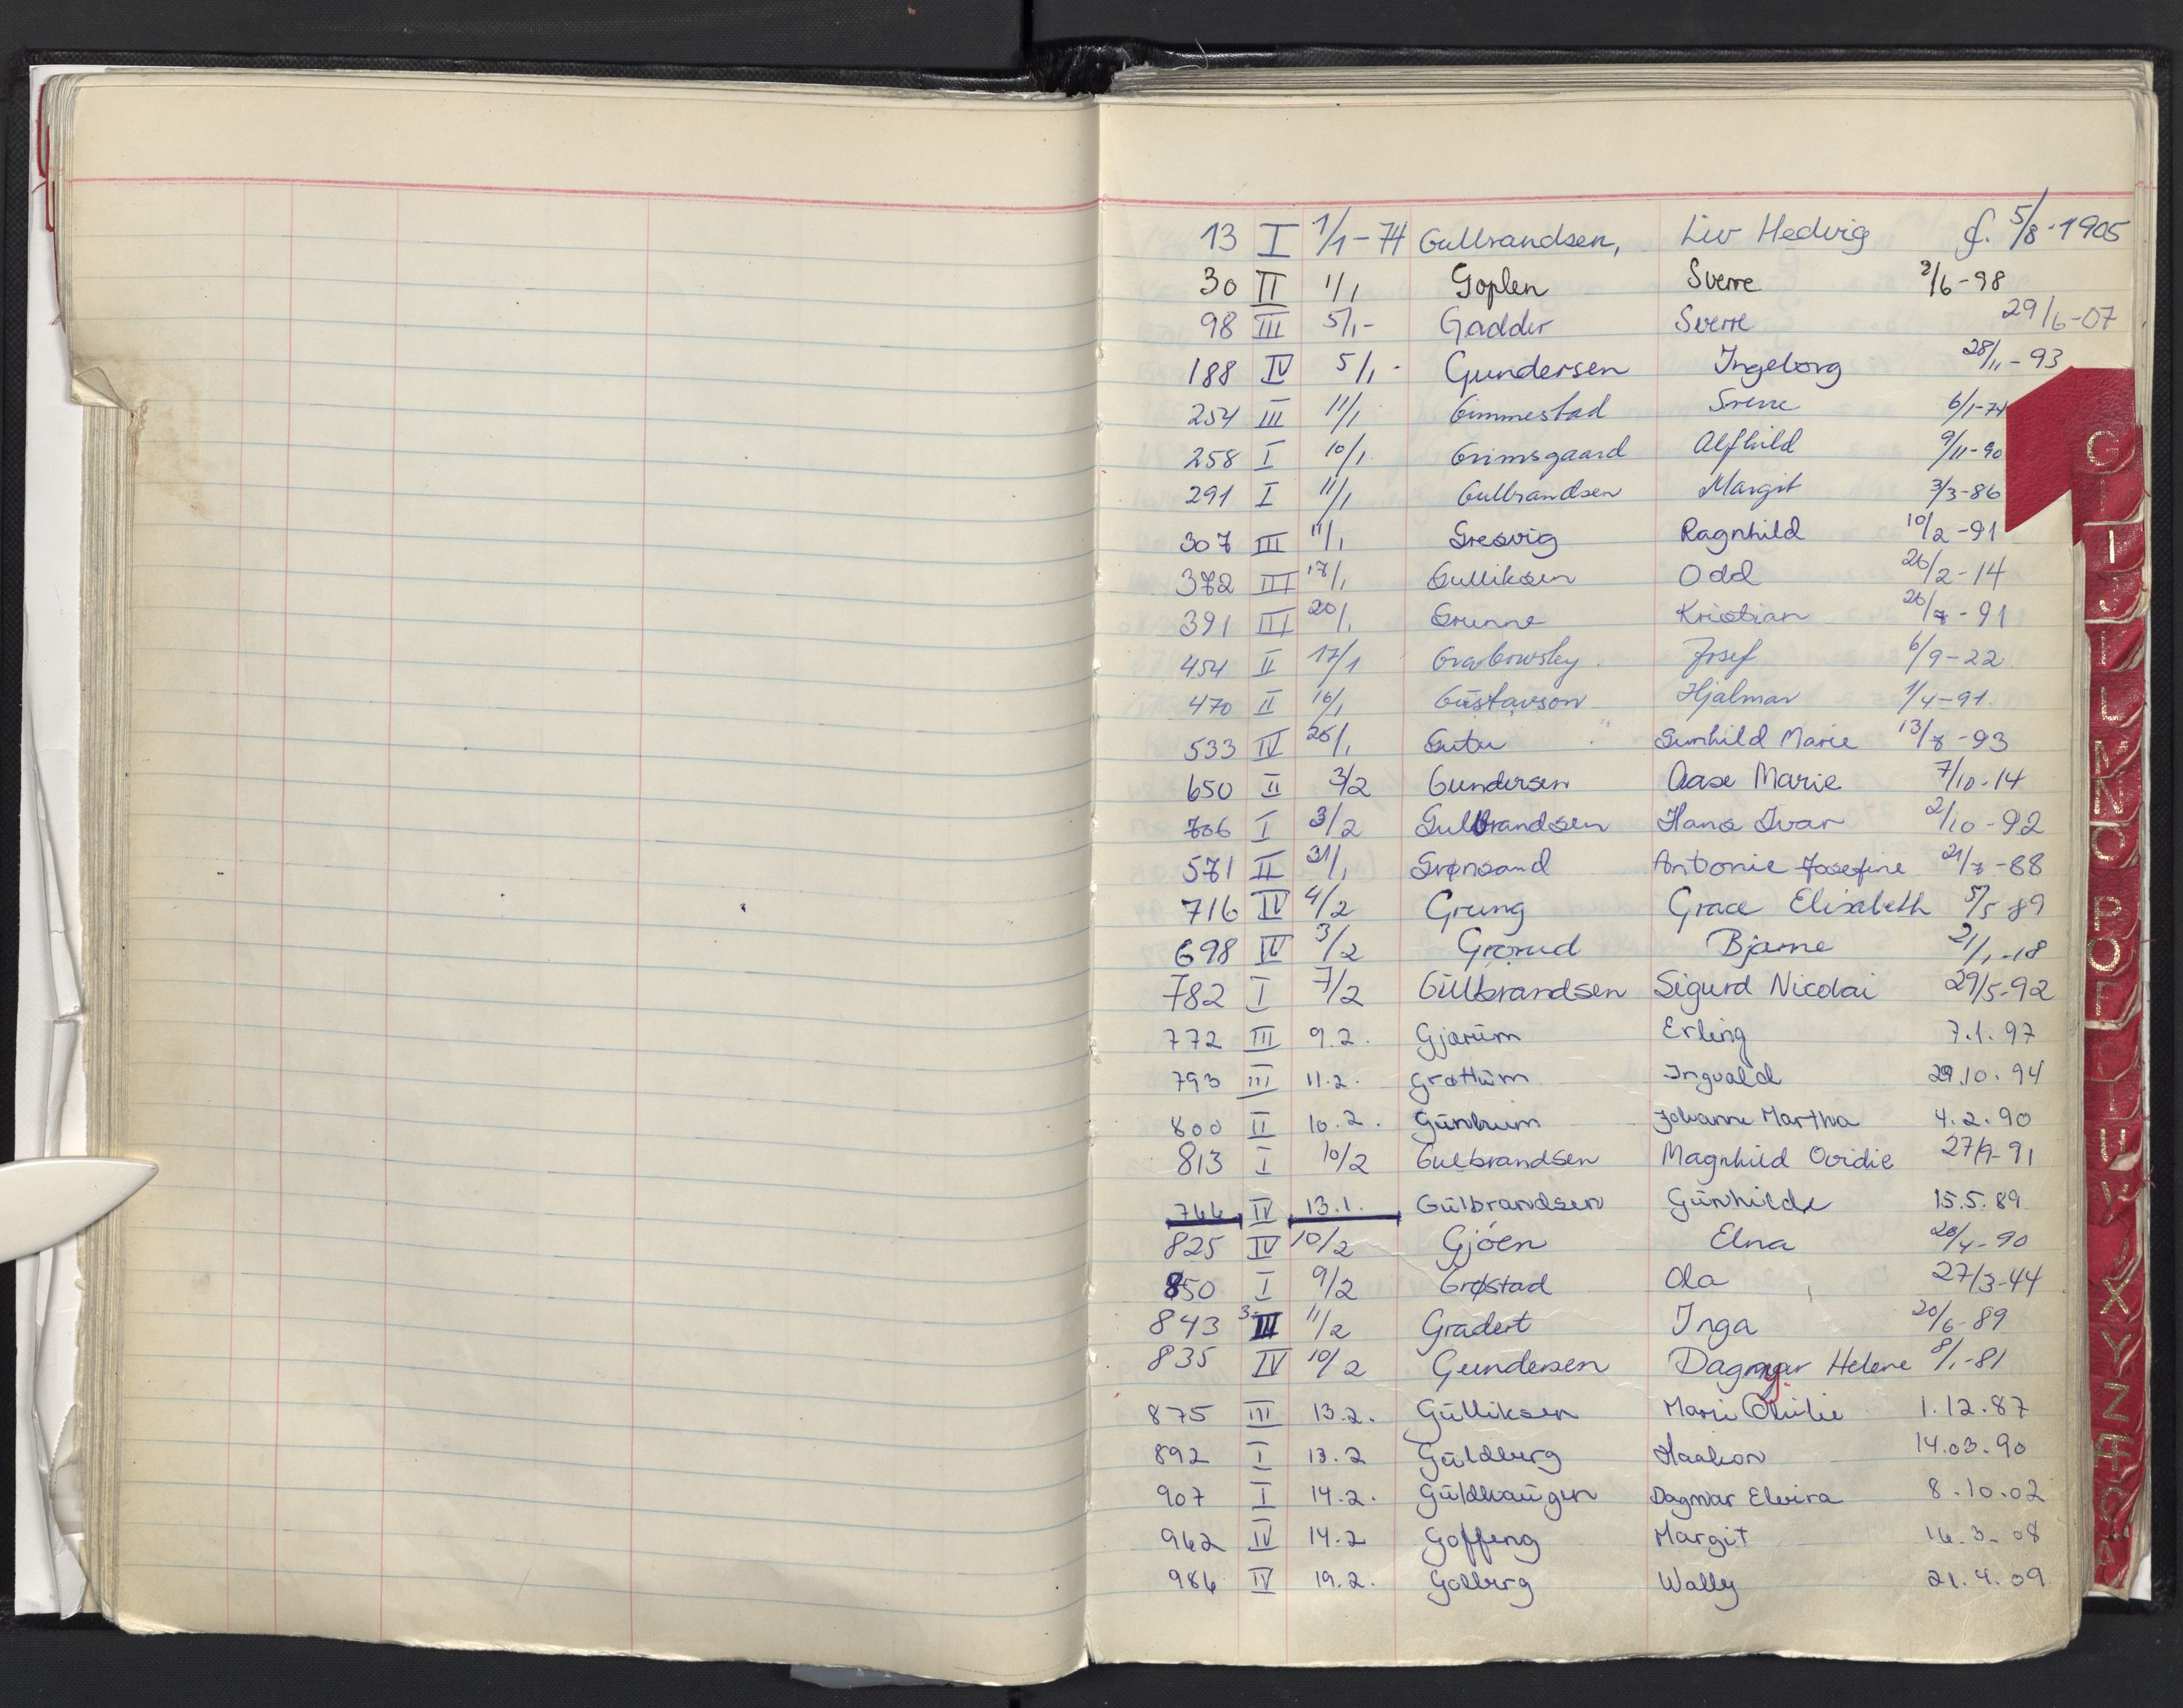 13 I 1/1-74 Gulbrandsen, Liv Hedvig f. 5/8-1905
30 II 1/1 Goplen Sverre 2/6-98
98 III 5/1- Gadder Sverre 29/6-07
188 IV 5/1- Gundersen Ingeborg 28/11-93
254 III 11/1 Gimmestad Sverre 6/1-74
258 I 10/1 Grimsgaard Alfhild 9/11-90
291 I 11/1 Gulbrandsen Margit 3/3-86
307 III 11/1 Gresvig Ragnhild 10/2-91
372 III 17/1 Gulliksen Odd 26/2-14
391 III 20/1 Grunne Kristian 26/7-91
454 II 17/1 Grabowsky Josef 6/9-22
470 II 16/1 Gustavson Hjalmar 1/4-91
533 IV 26/1 Gunhild Marie 13/7-93
650 II 3/2 Gundersen Aase Marie 7/10-14
706 I 3/2 Gulbrandsen Hans Ivar 2/10-92
571 II 31/1 Grønsand Antonie Josefine 21/7-88
716 IV 4/2 Grung Grace Elisabeth 5/5-89
698 IV 3/2 Grorud Bjarne 21/1-18
782 I 7/2 Gulbrandsen Sigurd Nicolai 29/5-92
772 III 9.2. Gjørum Erling 7.1.97
793 III 11.2. Grøttum Ingvald 29.10.94
800 II 10.2. Johanne Martha 4.2.90
813 I 10/2 Gulbrandsen Magnhild Ovidie 27/9-91
744 IV 13.1. Gulbrandsen Gunhilde 15.5.89
825 IV 10/2 Gjøen Elna 20/4-90
850 I 9/2 Grøstad Ola 27/3-44
843 3. III 11/2 Gradert Inga 20/6-89
835 IV 10/2 Gundersen Dagmar Helene 8/1-81
875 III 13.2. Gulliksen Marie 1.12.87
892 I 13.2 Guldberg Haakon 14.03.90
907 I 14.2. Guldhaugen Dagmar Elvira 8.10.02
962 IV 14.2 Goffeng Margit 16.3.08
986 IV 19.2. Golberg Wally 21.4.09
G